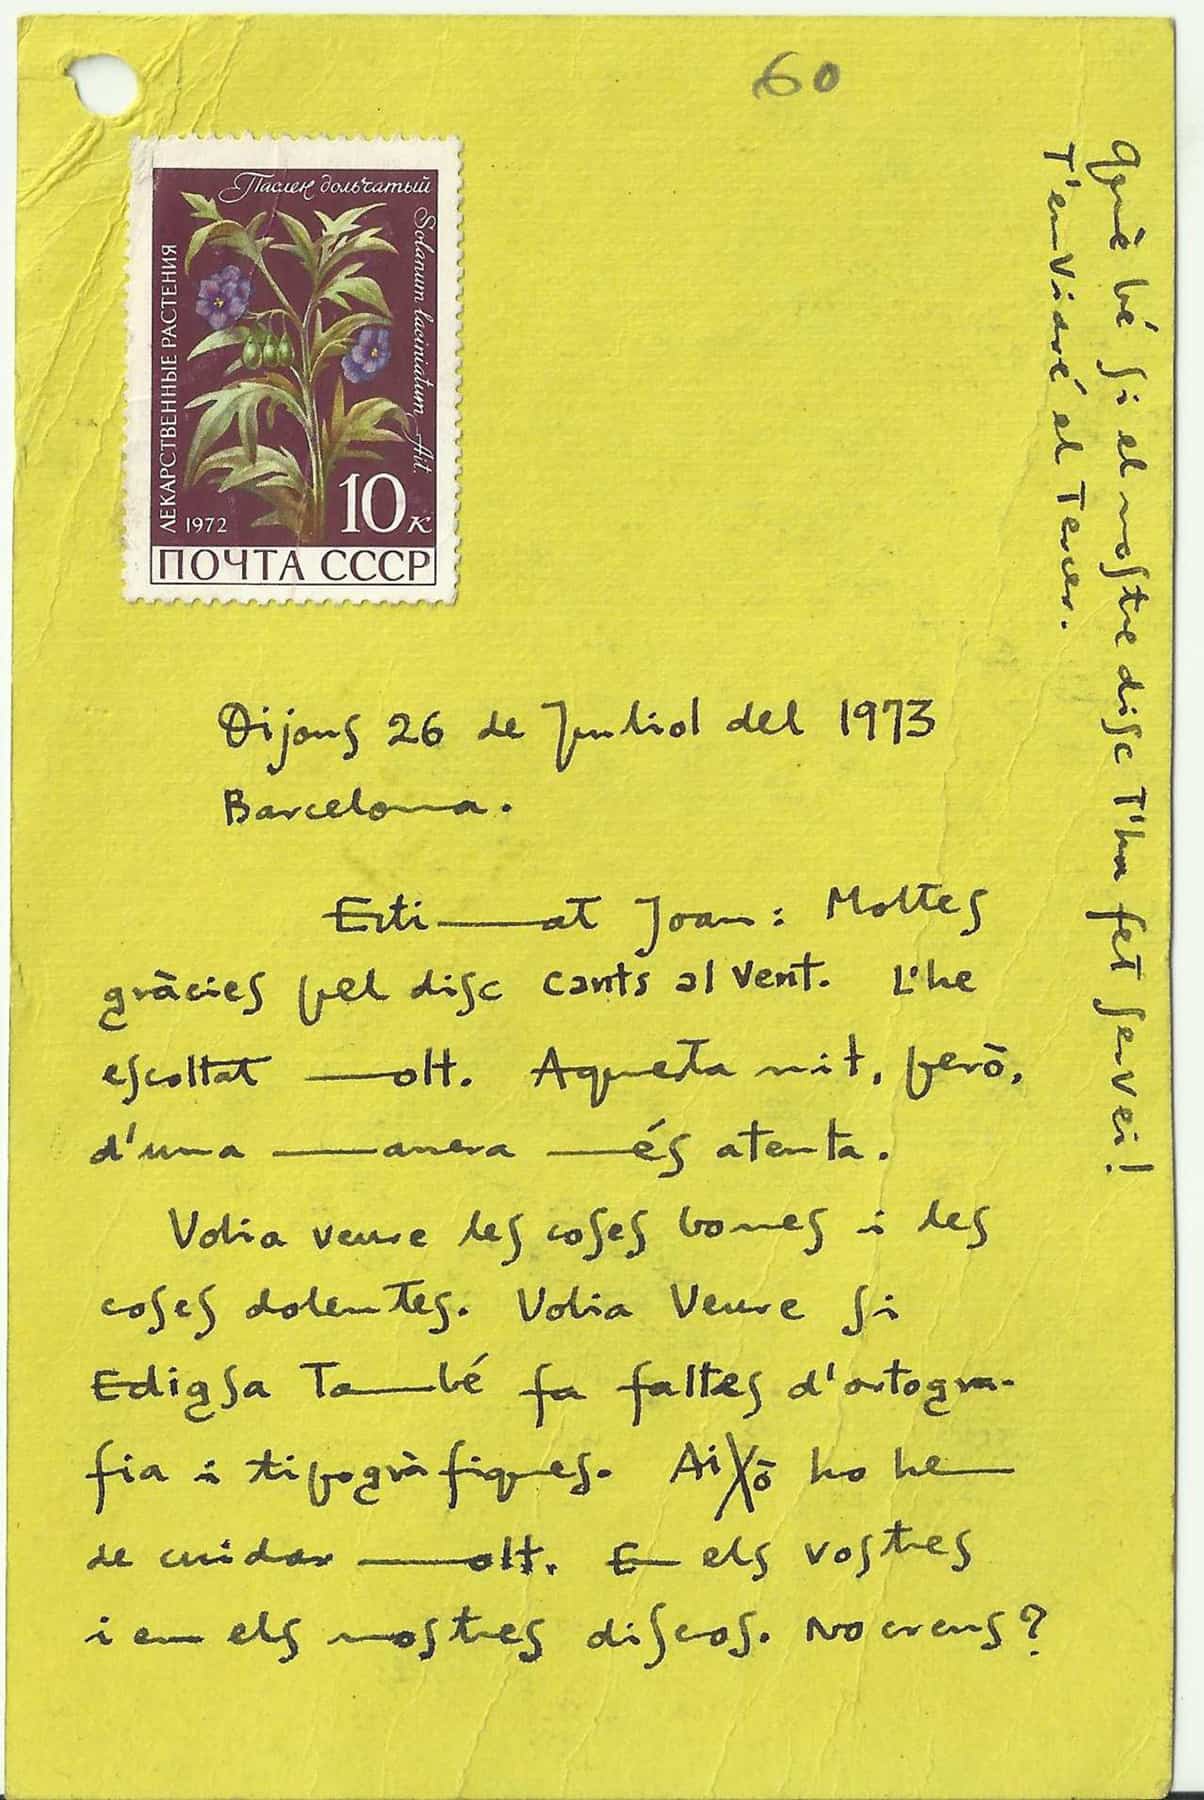 60
Паслен дольчатый
Solanum laciniatum Ait.
ЛЕКАРСТВЕННЫЕ РАСТЕНИЯ
1972
10 к
ПОЧТА СССР
Dijous 26 de Juliol del 1973
Barcelona.
Estimat Joan: Moltes
gràcies pel disc cants al vent. L'he
escoltat molt. Aquesta nit, però,
d'una manera més atenta.
Volia veure les coses bones i les
coses dolentes. Volia veure si
Edigsa també fa faltes d'ortogra-
fia i tipogràfiques. Això ho hem
de cuidar molt. En els vostres
i en els nostres discos. No creus?
Què bé si el nostre disc t'ha fet servei!
T'enviaré el Tercer.